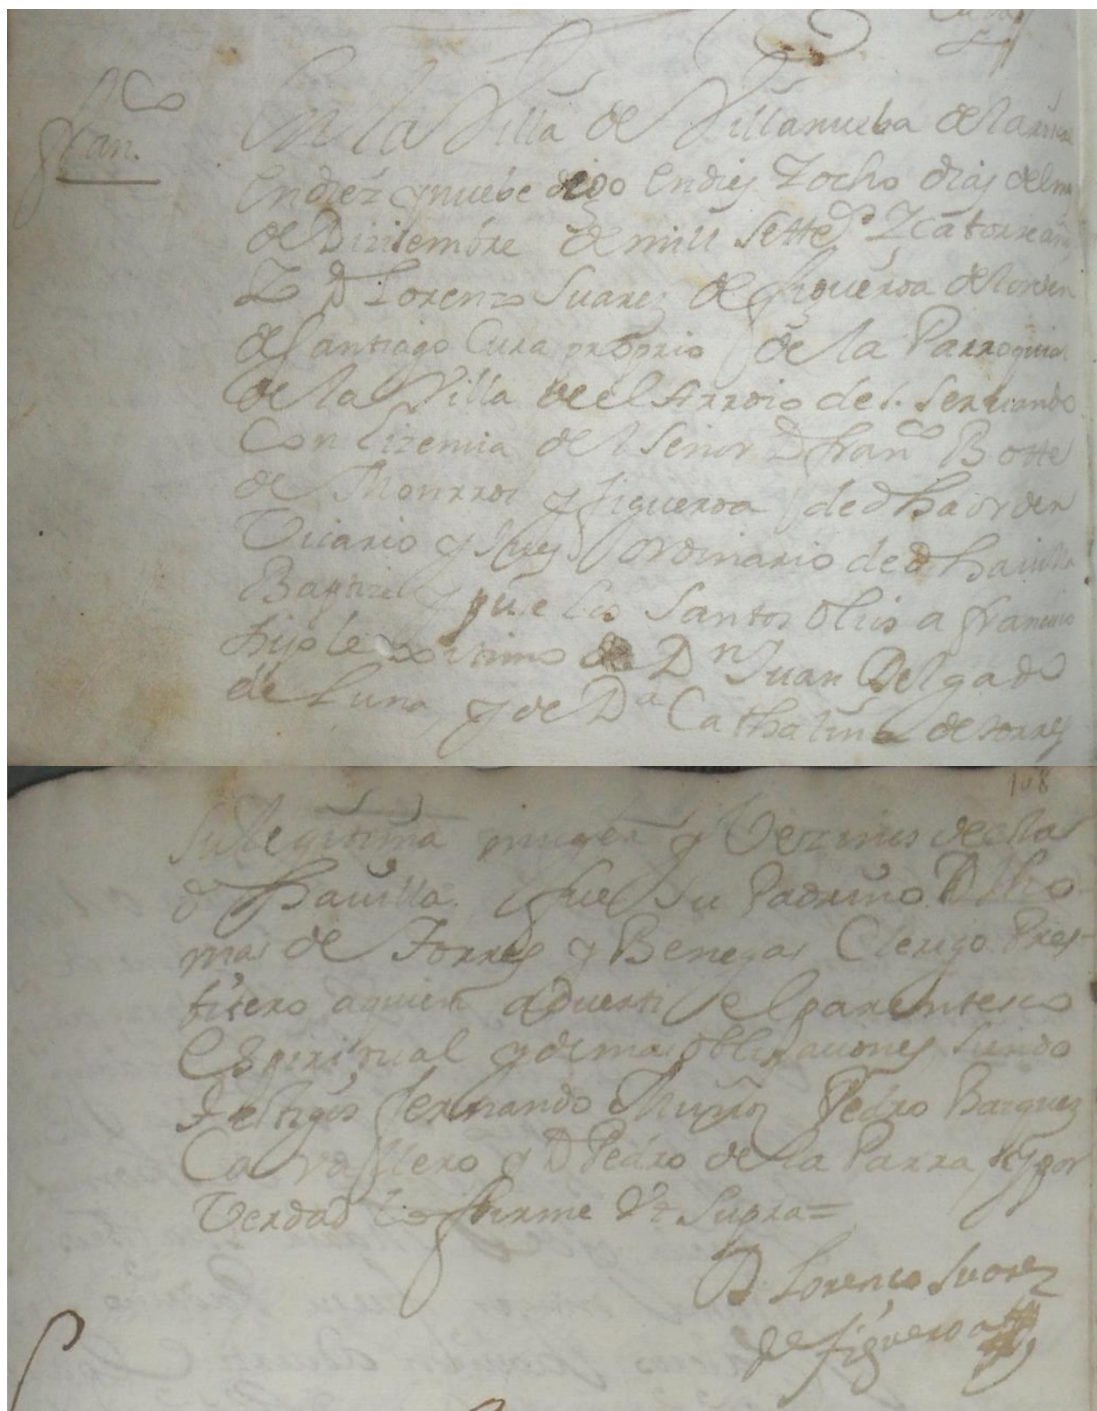 Fran.co
En la Villa de Villanueba de la
En diez y nuebe digo En diez Y ocho dias del
de Diziembre de mill sette.s Y catorze
Yo D Lorenzo Suarez de figueroa de lorden
de Santiago Cura proprio de la Parroquia
de la Villa de el Arroio de S. Seruando
Con Lizemcia de el Senor D fran.co Botte
de Monrroi y figueroa de dha orden
Vicario y Juez ordinario de dha uilla
Baptize y puse los Santos Olios a francisco
hijo lexitimo de D.n Juan Delgado
de Luna y de D.a Cathalina de torres
108
Su legitima muger y Vezinos de esta
dha uilla. fue su Padrino D Tho
mas de Torres y Benegas Clerigo Pres-
bitero a quien aduerti el parentesco
Espiritual y demas obligaciones siendo
Testigos fernando Muñoz Pedro Barquez
Cavallero y D Pedro de la Parra, y por
Verdad Lo firme Vt Supra=
D. Lorenco Suarez
de figueroa